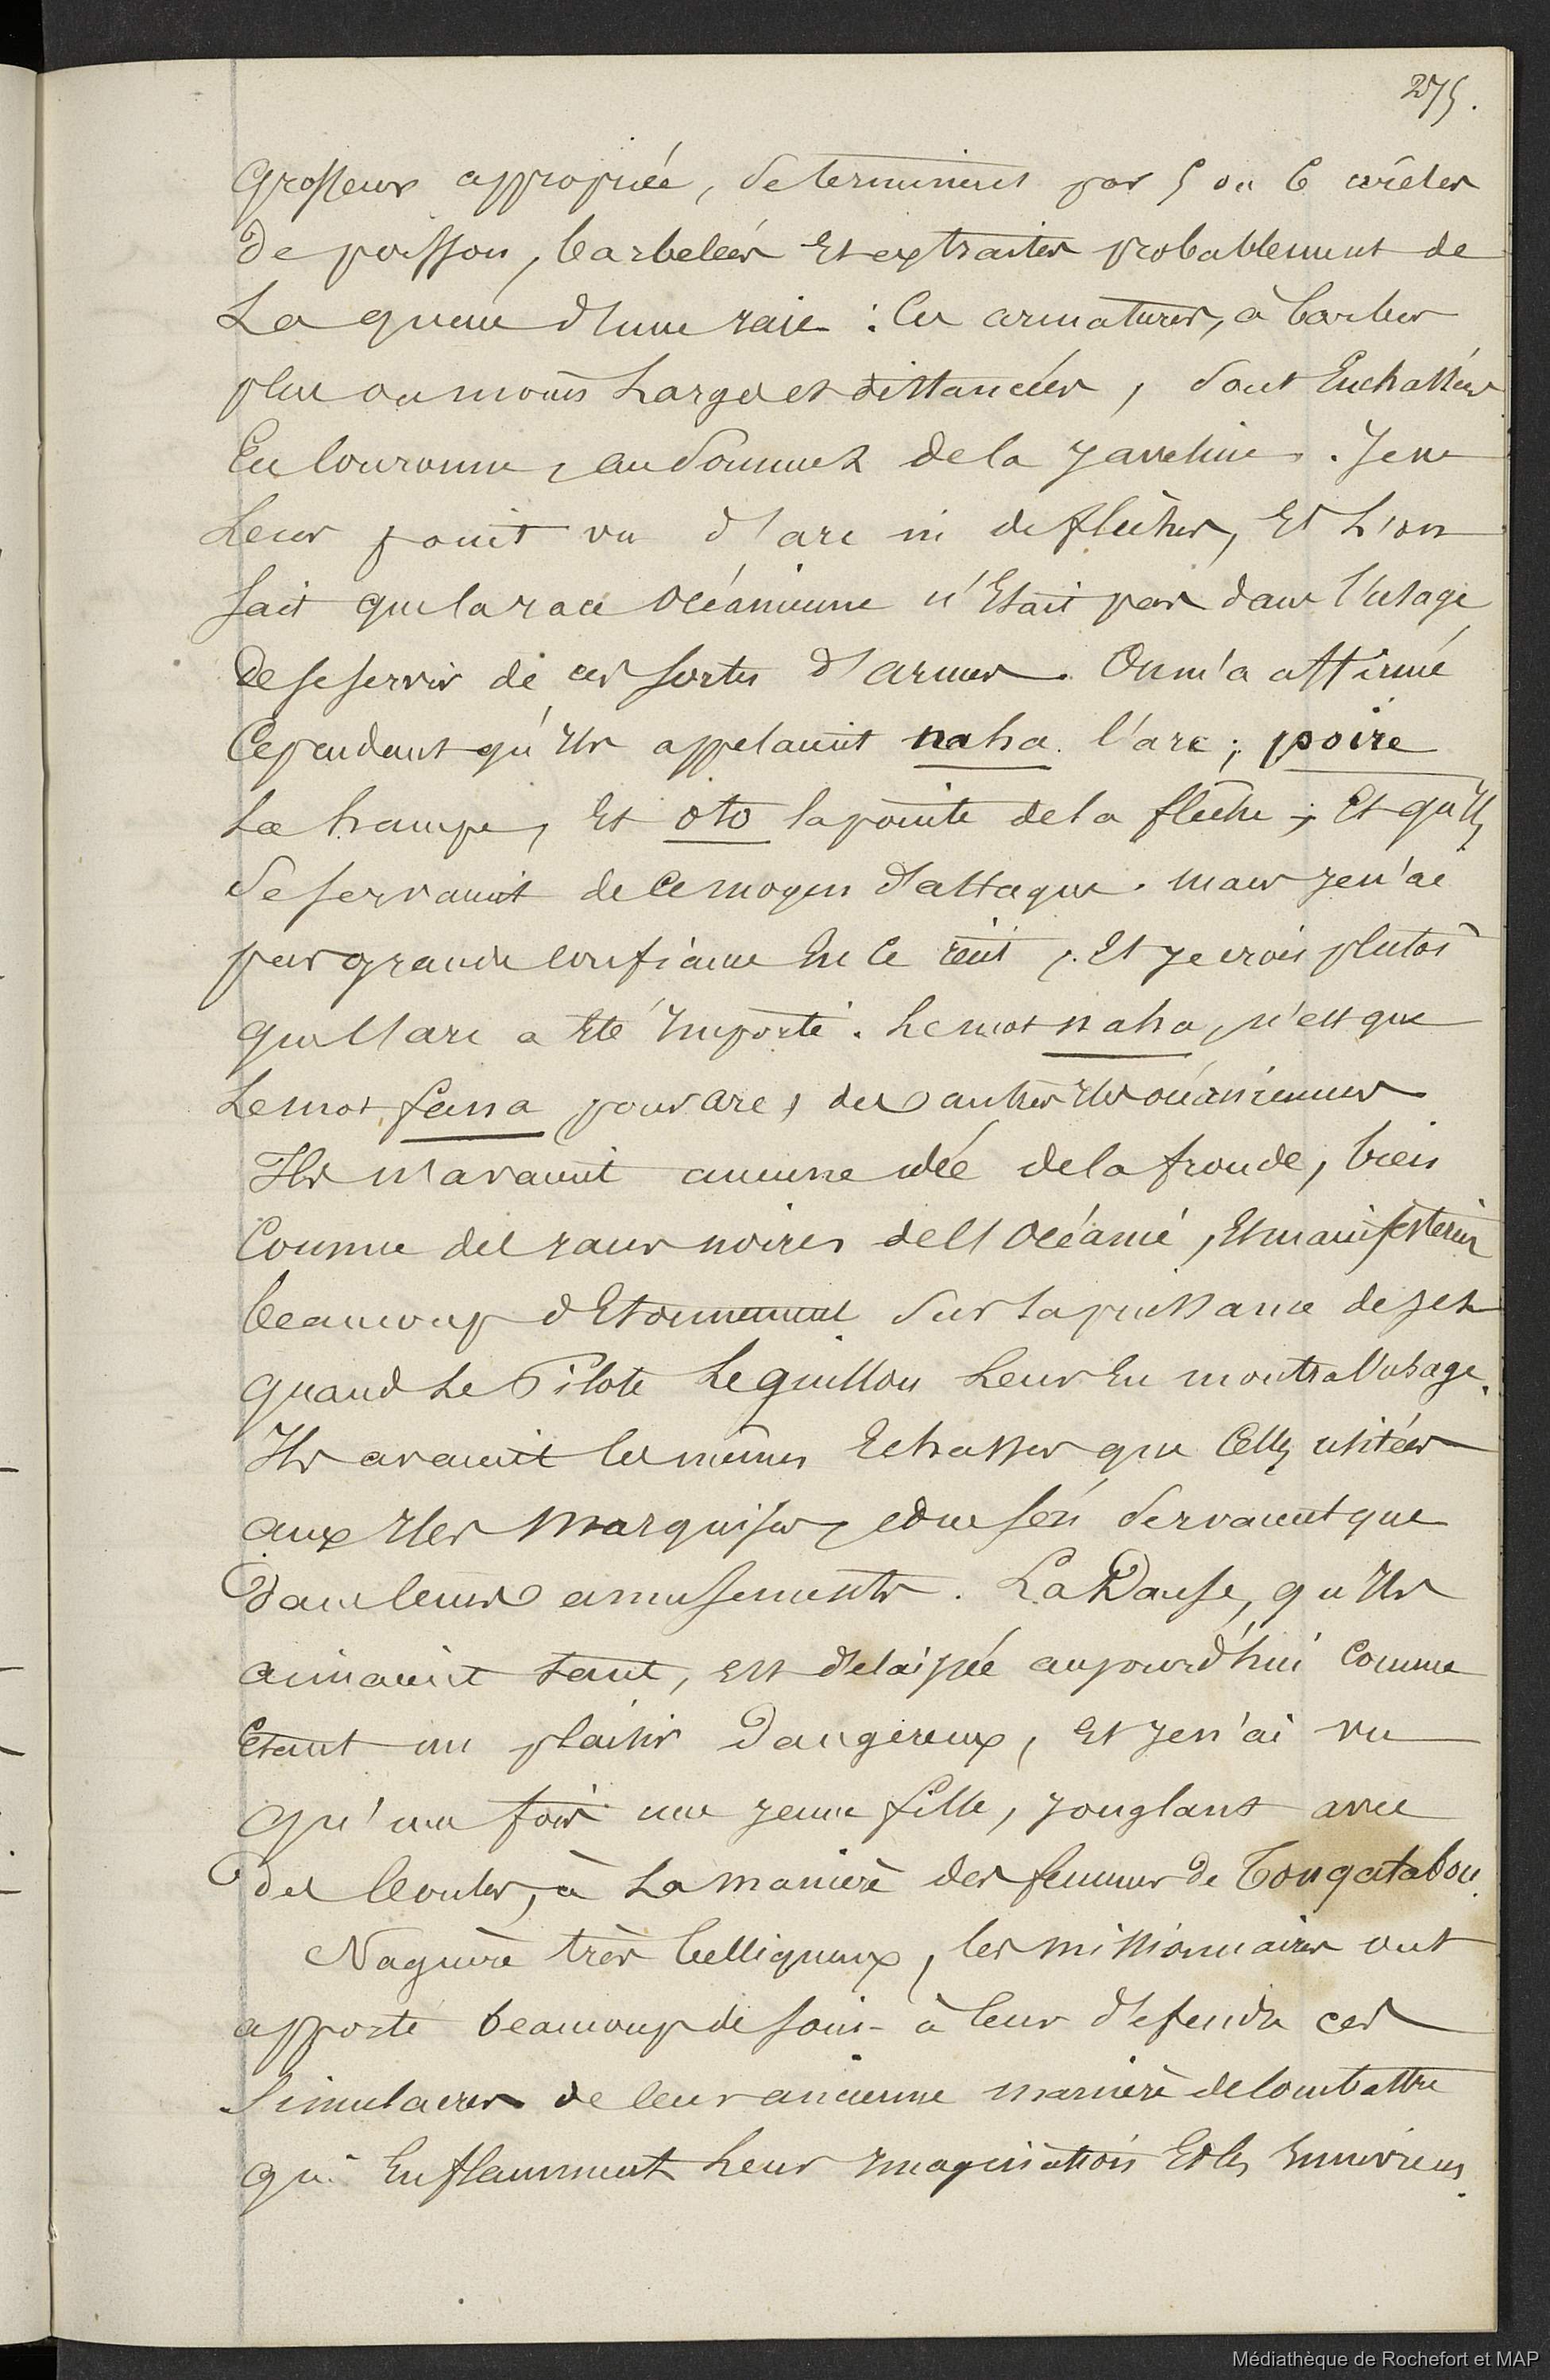 275.
grosseur appropriée, se terminent par 5 ou 6 arêtes
de poisson, barbelées et extraites probablement de
la queue d'une raie : ces armatures, à barbes
plus ou moins larges et distancées, sont enchassées
en couronne, au sommet de la javeline. Je ne
leur point vu d'arc ni de flèches, et l'on
sait que la race océanienne n'était pas dans l'usage
de se servir de ces sortes d'armes. On m'a affirmé
cependant qu'ils appelaient naha l'arc ; poire
la hampe, et oto la pointe de la flèche ; et qu'ils
se servaient de ce moyen d'attaque. mais je n'ai
pas grande confiance en ce récit, et je crois plutôt
que l'arc a été importé. le mot naha, n'est que
le mot fana pour arc, des autres iles océaniennes
Ils n'avaient aucune idée de la fronde, bien
connue des races noires de l'océanie, et manifestèrent
beaucoup d'etonnement sur la puissance de jet
quand le Pilote Leguillou leur en montra l'usage.
Ils avaient les mêmes echasses que celles usitées
aux iles marquises, et ne s'en servaient que
dans leurs amusements. La Danse, qu'ils
aimaient tant, est délaissée aujourd'hui comme
etant un plaisir dangereux, et je n'ai vu
qu'une fois une jeune fille, jonglant avec
des boules, à la manière des femmes de Tongatabou.
Naguère très belliqueux, les missionnaires ont
apporté beaucoup de soins à leur défendre ces
simulacres de leur ancienne manière de combattre
qui enflamment leur imagination et les enivrent.
Médiathèque de Rochefort et MAP